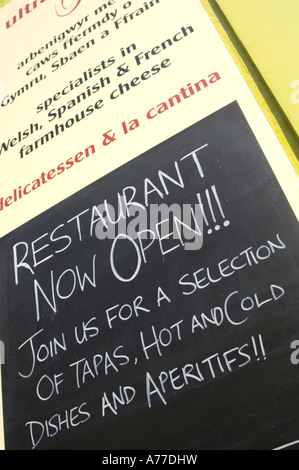 ultra
arbenigwyr me
caws ffermdy o
Gymru, Sbaen a Ffrain
specialists in
Welsh, Spanish & French
farmhouse cheese
delicatessen & la cantina
RESTAURANT
NOW OPEN!!!
JOIN US FOR A SELECTION
OF TAPAS, HOT AND COLD
DISHES AND APERITIFS!!
alamy
A77DHW
www.alamy.com